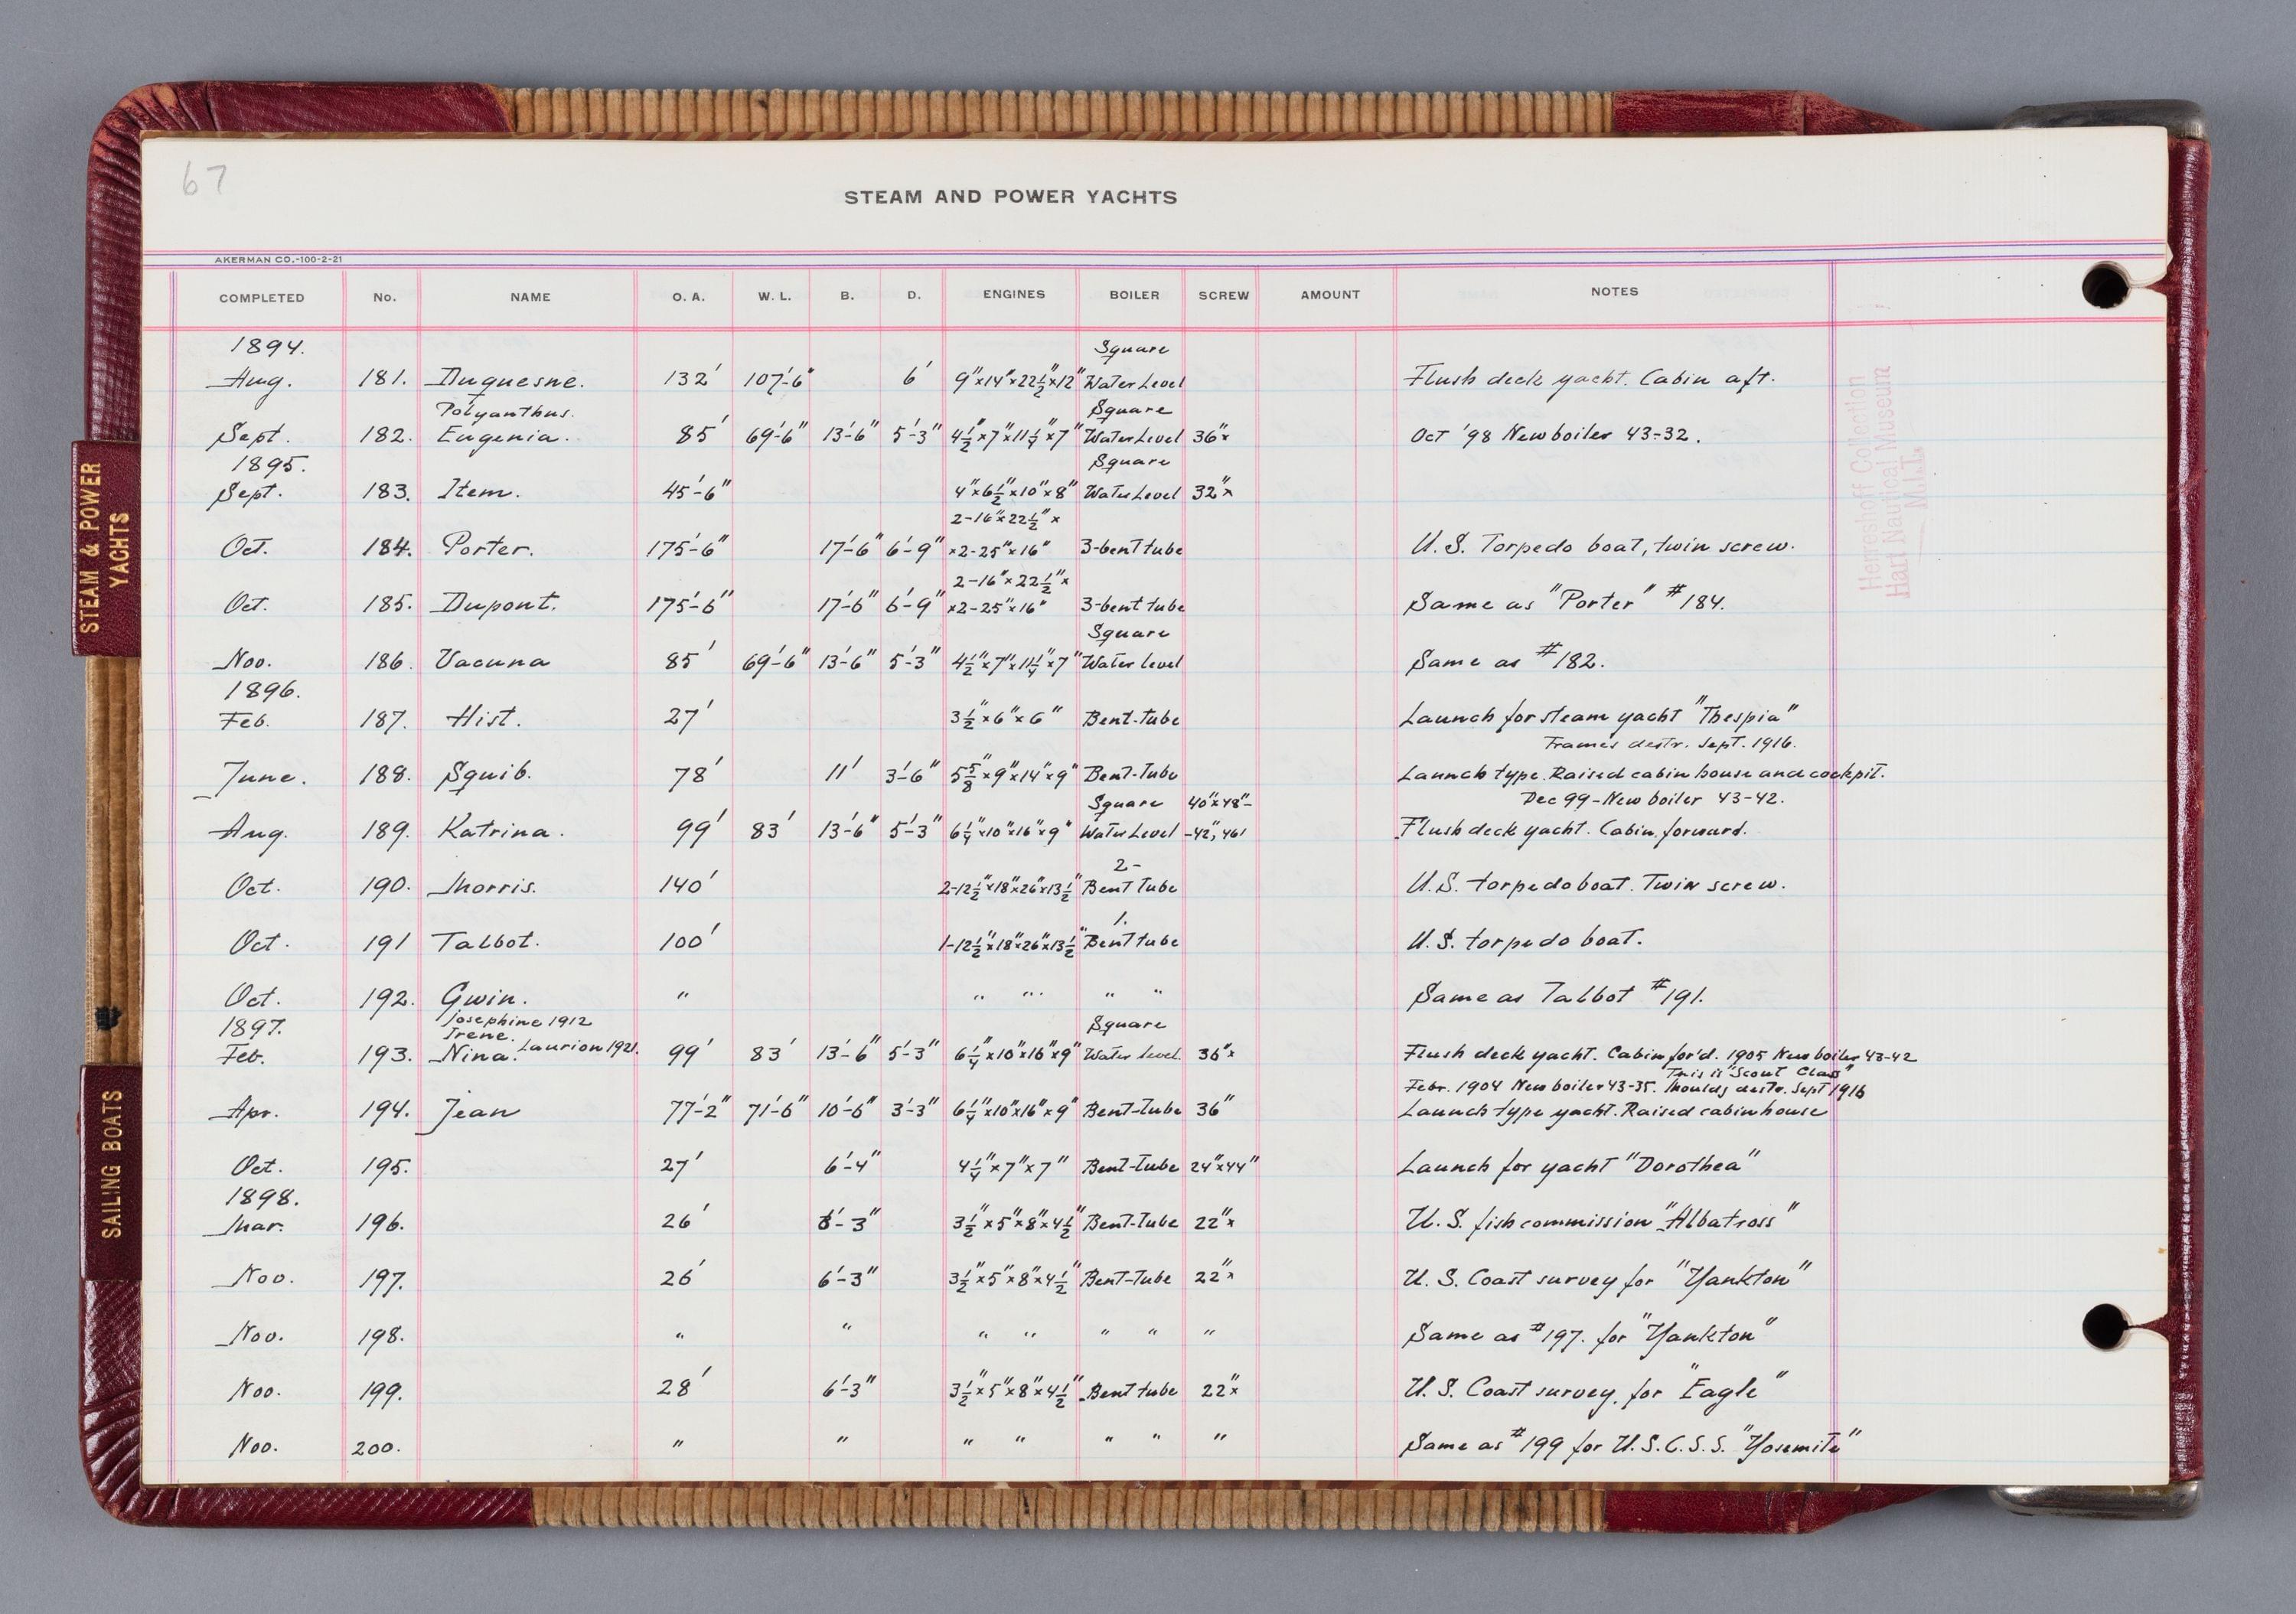 67
STEAM AND POWER YACHTS
AKERMAN CO.-100-2-21
COMPLETED No. NAME O. A. W. L. B. D. ENGINES BOILER SCREW AMOUNT NOTES
1894. Square
Aug. 181. Duquesne. 132' 107'-6" 6' 9"x14"x22½"x12" Water Level Flush deck yacht. Cabin aft.
Polyanthus. Square
Sept. 182. Eugenia. 85' 69'-6" 13'-6" 5'-3" 4½"x7"x11¼"x7" Water Level 36"x Oct '98 New boiler 43-32.
1895. Square
Sept. 183. Item. 45'-6" 4"x6½"x10"x8" Water Level 32"x
2-16"x22½"x
Oct. 184. Porter. 175'-6" 17'-6" 6'-9" x2-25"x16" 3-bent tube U.S. Torpedo boat, twin screw.
2-16"x22½"x
Oct. 185. Dupont. 175'-6" 17'-6" 6'-9" x2-25"x16" 3-bent tube Same as "Porter" #184.
Square
Nov. 186. Vacuna 85' 69'-6" 13'-6" 5'-3" 4½"x7"x11¼"x7" Water level Same as #182.
1896.
Feb. 187. Hist. 27' 3½"x6"x6" Bent-tube Launch for steam yacht "Thespia"
Frames destr. Sept. 1916.
June. 188. Squib. 78' 11' 3'-6" 5⅝"x9"x14"x9" Bent-Tube Launch type. Raised cabin house and cockpit.
Square 40"x48"- Dec 99-New boiler 43-42.
Aug. 189. Katrina. 99' 83' 13'-6" 5'-3" 6¼"x10"x16"x9" Water Level -42", 46' Flush deck yacht. Cabin forward.
2-
Oct. 190. Morris. 140' 2-12½"x18"x26"x13½" Bent Tube U.S. torpedo boat. Twin screw.
1.
Oct. 191 Talbot. 100' 1-12½"x18"x26"x13½" Bent tube U.S. torpedo boat.
Oct. 192. Gwin. " " " " " Same as Talbot #191.
Josephine 1912
1897. Irene. Square
Feb. 193. Nina. Laurion 1921. 99' 83' 13'-6" 5'-3" 6¼"x10"x16"x9" Water level. 36"x Flush deck yacht. Cabin for'd. 1905 New boiler 43-42
This is "Scout Class"
Febr. 1904 New boiler 43-35. Moulds destr. Sept 1916
Apr. 194. Jean 77'-2" 71'-6" 10'-6" 3'-3" 6¼"x10"x16"x9" Bent-Tube 36" Launch type yacht. Raised cabin house
Oct. 195. 27' 6'-4" 4¼"x7"x7" Bent-Tube 24"x44" Launch for yacht "Dorothea"
1898.
Mar. 196. 26' 6'-3" 3½"x5"x8"x4½" Bent-Tube 22"x U.S. fish commission "Albatross"
Nov. 197. 26' 6'-3" 3½"x5"x8"x4½" Bent-Tube 22"x U.S. Coast survey for "Yankton"
Nov. 198. " " " " " " " Same as #197. for "Yankton"
Nov. 199. 28' 6'-3" 3½"x5"x8"x4½" Bent tube 22"x U.S. Coast survey, for "Eagle"
Nov. 200. " " " " " " " Same as #199 for U.S.C.S.S. "Yosemite"
STEAM & POWER
YACHTS
SAILING BOATS
Herreshoff Collection
Hart Nautical Museum
M.I.T.